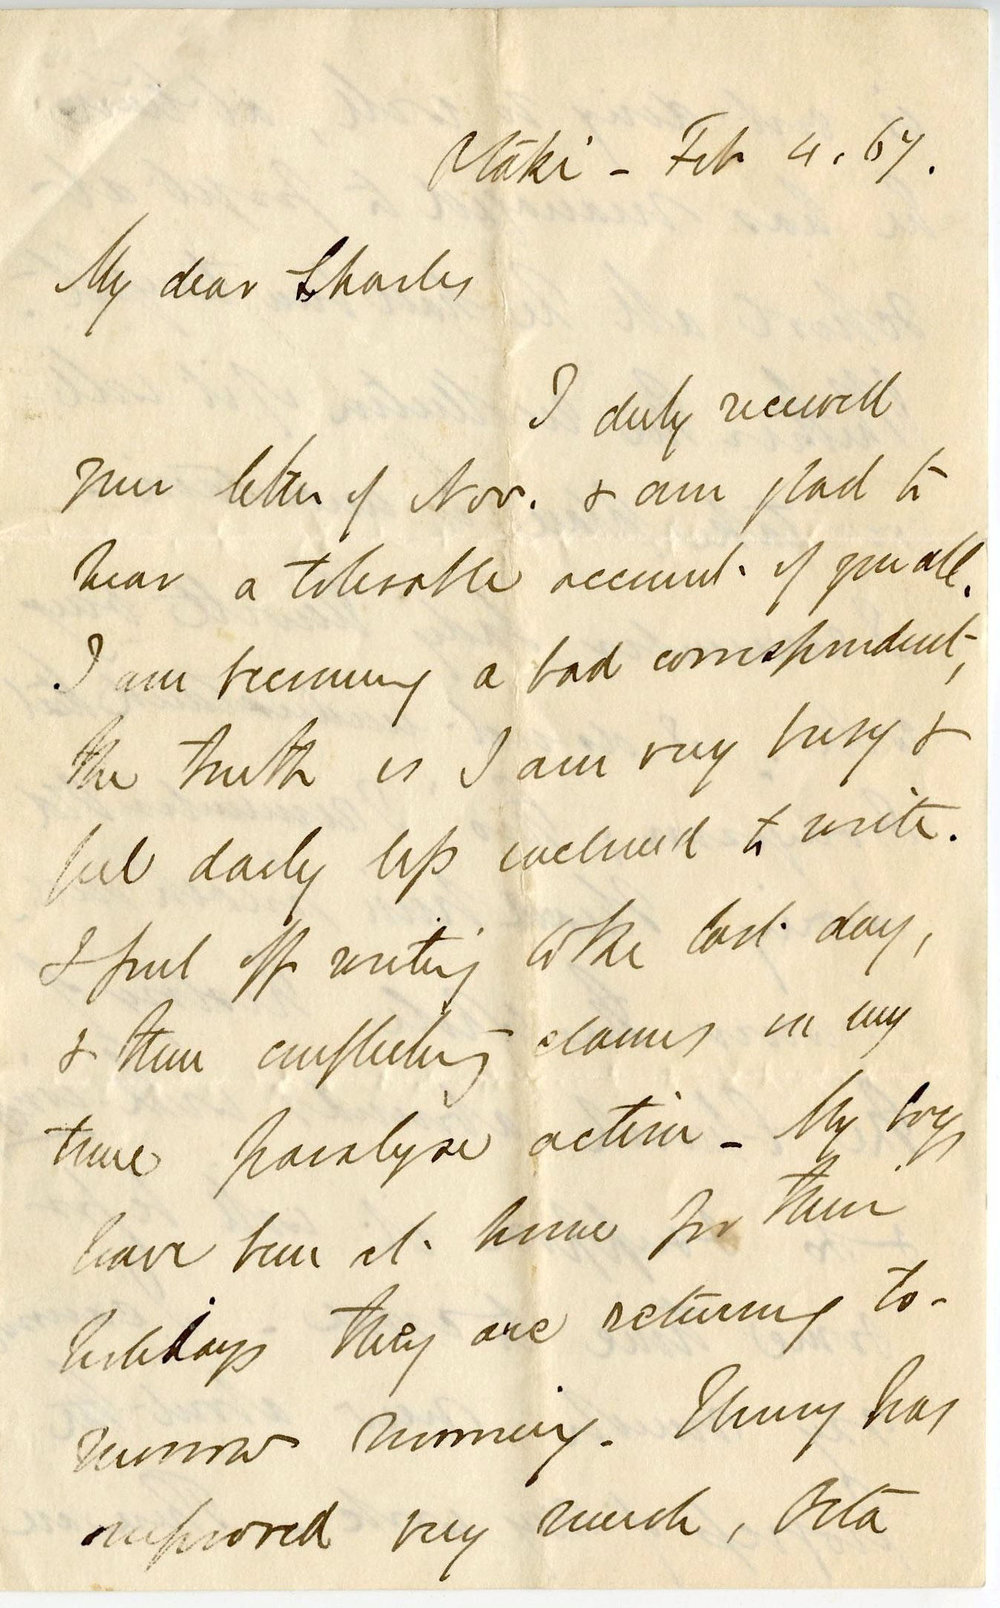 Otaki - Feb 4. 67.
My dear Charles
I duly received
your letter of Nov. & am glad to
hear a tolerable account of you all.
I am becoming a bad correspondent,
the truth is I am very busy &
feel daily less inclined to write.
I put off writing to the last day,
& then conflicting claims on my
time paralyse action - My boys
have been at home for their
holidays they are returning to-
morrow morning. Henry has
improved very much,